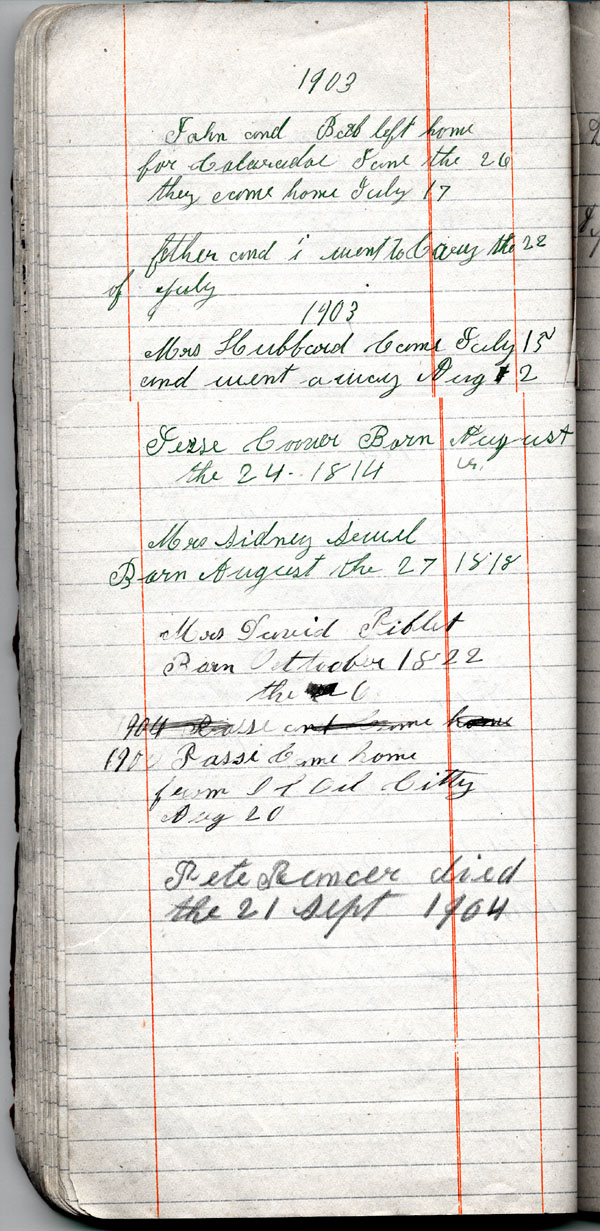 1903
John and Bab left home
for Colaradoe June the 26
they came home July 17
father and i went to Cary the 22
of July
1903
Mrs Hubbard Came July 15
and went away Aug 12
Jesse Coover Born August
the 24. 1814
Mrs Sidney Sewel
Born August the 27 1818
Mrs David Riblet
Born Octtober 1822
the 20
1904 Rosse and Came home
190 Rosse Came home
from Citty
Aug 20
Pete Rencer died
the 21 Sept 1904